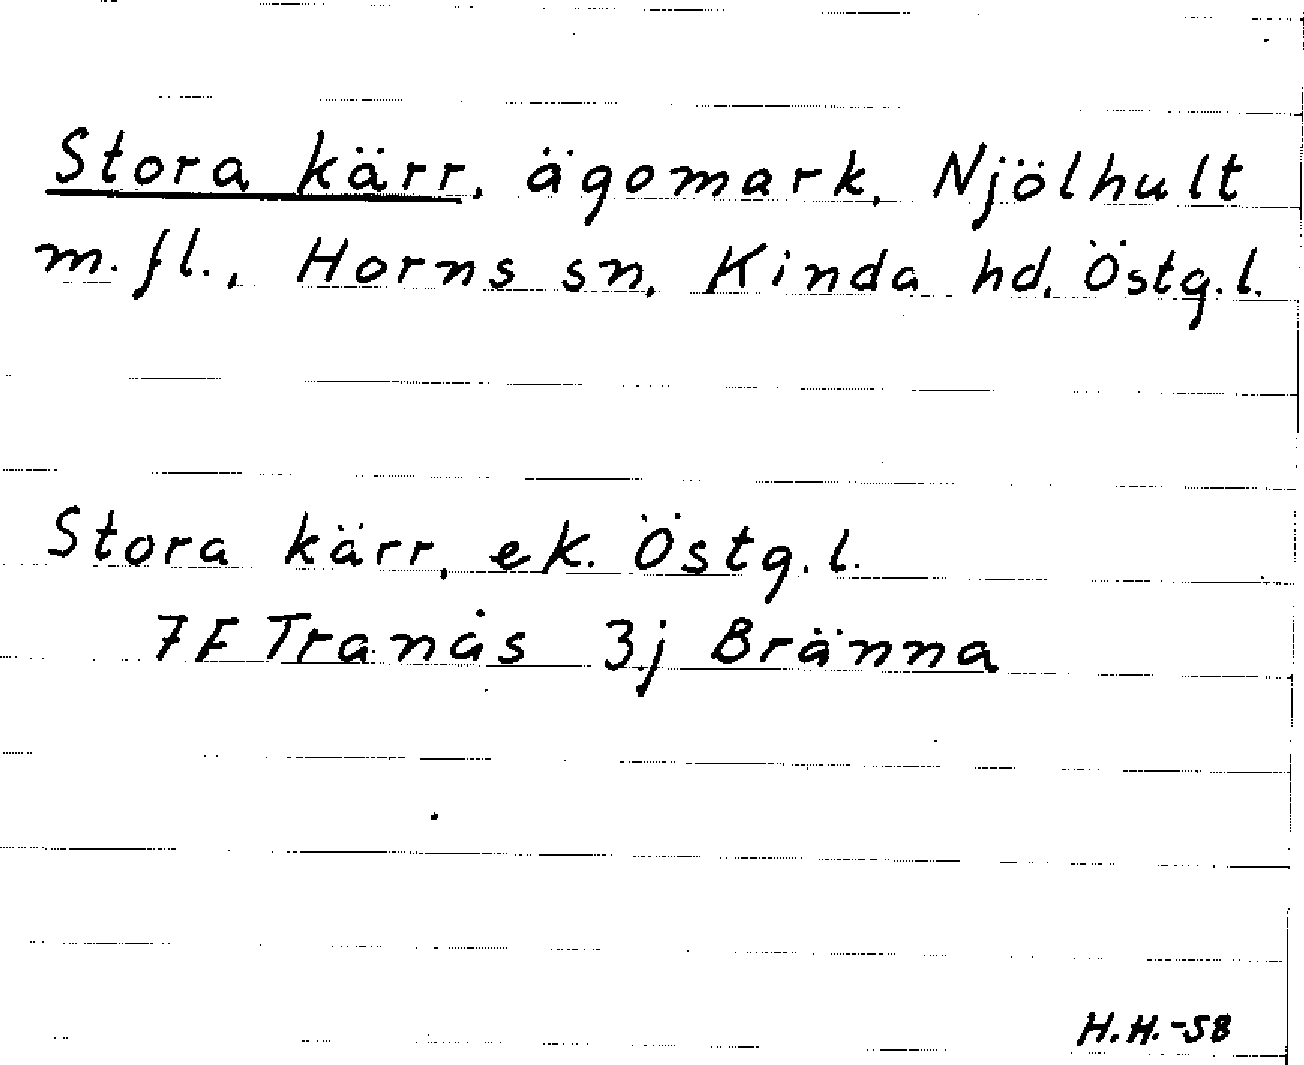 Stora kärr, ägomark, Njölhult
m.fl., Horns sn, Kinda hd, Östg.l.
Stora kärr, ek. Östg.l.
7F Tranås 3j Bränna
H.H.-58